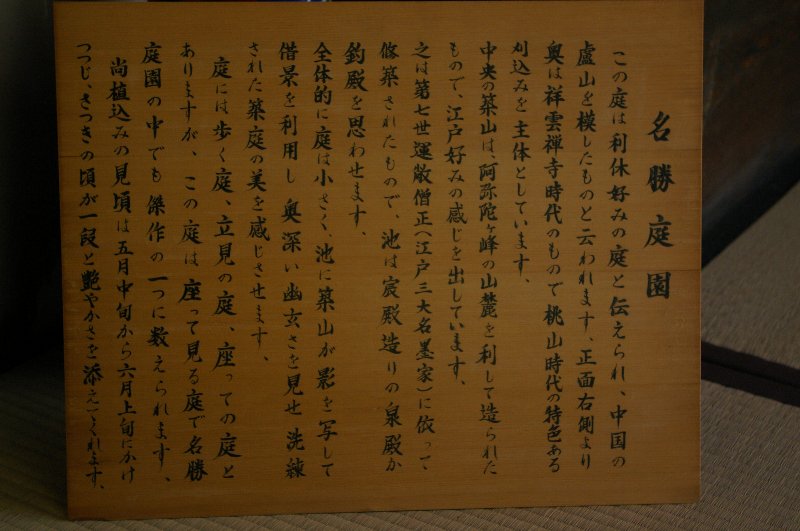 名勝庭園
この庭は利休好みの庭と伝えられ、中国の
盧山を模したものと云われます、正面右側より
奥は祥雲禅寺時代のもので桃山時代の特色ある
刈込みを主体としています、
中央の築山は、阿弥陀ヶ峰の山麓を利して造られた
もので、江戸好みの感じを出しています、
之は第七世運敞僧正(江戸三大名墨家)に依って
修築されたもので、池は宸殿造りの泉殿か
釣殿を思わせます、
全体的に庭は小さく、池に築山が影を写して
借景を利用し奥深い幽玄さを見せ洗練
された築庭の美を感じさせます、
庭には歩く庭、立見の庭、座っての庭と
ありますが、この庭は座って見る庭で名勝
庭園の中でも傑作の一つに数えられます、
尚植込みの見頃は五月中旬から六月上旬にかけ
つつじ、さつきの頃が一段と艶やかさを添えてくれます、